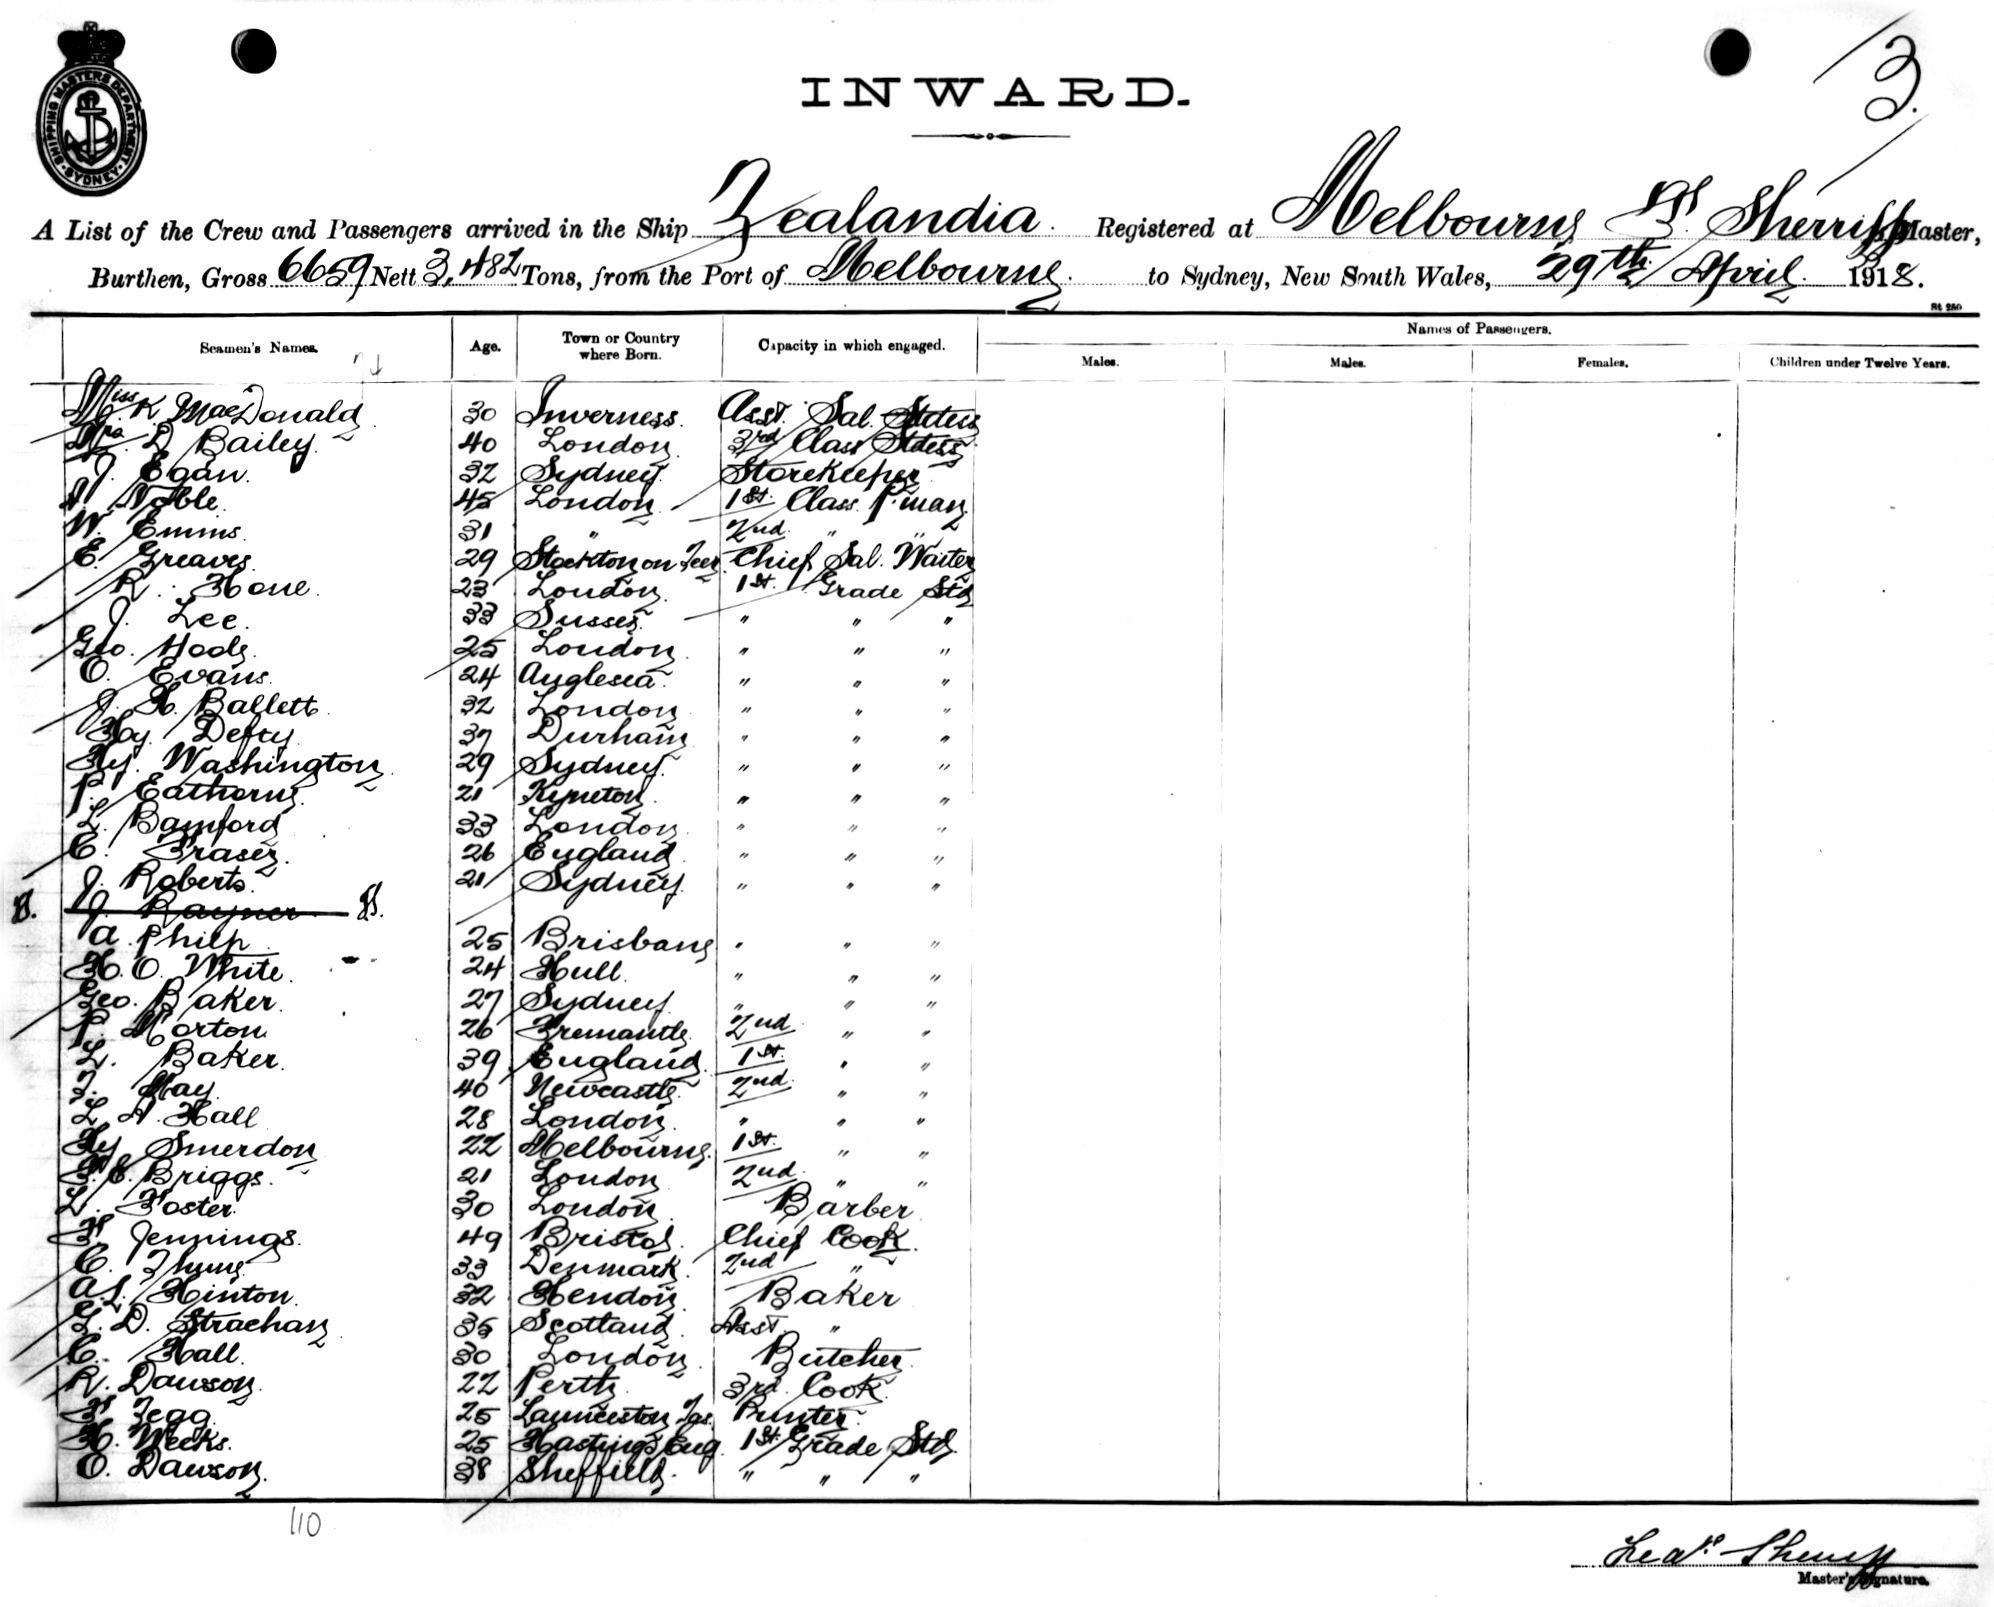 SHIPPING MASTERS DEPARTMENT · SYDNEY ·
3.
INWARD.
A List of the Crew and Passengers arrived in the Ship Zealandia. Registered at Melbourne Sherriff Master,
Burthen, Gross 6659 Nett 3,482 Tons, from the Port of Melbourne. to Sydney, New South Wales, 29th April 1918.
Names of Passengers.
Seamen's Names. Age. Town or Country where Born. Capacity in which engaged. Males. Males. Females. Children under Twelve Years.
Miss K. MacDonald 30 Inverness. Asst. Sal. Stdess
Mrs. D Bailey 40 London 3rd Class Stdess
J. Egan. 32 Sydney. Storekeeper
Noble. 45 London 1st. Class P'man
W. Emms. 31 " 2nd. " "
E. Greaves. 29 Stockton on Tees Chief Sal. Waiter
R. Hone. 23 London 1st. Grade Std
J. Lee. 33 Sussex. " " "
Geo. 25 London " " "
O. Evans. 24 Anglesea. " " "
J. H. Ballett 32 London " " "
Hy. Defty 37 Durham " " "
Hy. Washington 29 Sydney. " " "
P. Eathorne. 21 Kyneton. " " "
L. Bamford 33 London " " "
C. Fraser. 26 England " " "
J. Roberts. 21 Sydney " " "
J. Rayner
A Philp 25 Brisbane " " "
H. O. White. 24 Hull. " " "
Geo. Baker. 27 Sydney " " "
P. Morton 26 Fremantle. 2nd " "
L. Baker. 39 England 1st. " "
May. 40 Newcastle. 2nd. " "
L. A. Hall 28 London. " " "
Hy Smerdon 22 Melbourne. 1st. " "
Briggs. 21 London 2nd. " "
L. Foster. 30 London Barber
Jennings. 49 Bristol. Chief Cook.
C. 33 Denmark. 2nd "
A.L. Hinton. 32 Hendon Baker
G. D. Strachan 35 Scotland Asst. "
C. Hall. 30 London Butcher.
R. Dawson. 22 Perth 3rd. Cook
25 Launceston Tas. Printer.
H. Weeks. 25 Hastings Eng. 1st. Grade Std.
O. Dawson. 38 Sheffield. " " "
110
Master's Signature.